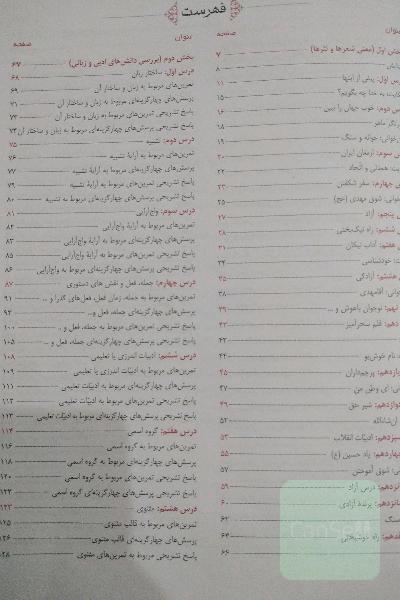 فهرست
عنوان
صفحه
بخش اول (معنی شعرها و نثرها) ۷
۸
درس اول: پیش از اینها ۹
به خدا چه بگویم؟ ۱۵
درس دوم: خوب جهان را ببین ۱۶
ماهر ۱۸
جوانه و سنگ ۱۹
درس سوم: ارمغان ایران ۲۰
همدلی و اتحاد ۲۲
چهارم: سفر شکفتن ۲۳
شوق مهدی (عج) ۲۵
پنجم: آزاد ۲۷
ششم: راه نیک‌بختی ۲۸
هفتم: آداب نیکان ۳۱
خودشناسی ۳۴
هشتم: آزادگی ۳۵
آقامهدی ۳۸
نهم: نوجوان باهوش و ... ۳۹
دهم: قلم سحرآمیز ۴۳
۴۴
نام خوش‌بو ۴۴
یازدهم: پرچم‌داران ۴۵
ای وطن من ۴۷
دوازدهم: شیر حق ۴۹
ان‌شاءالله ۵۲
سیزدهم: ادبیات انقلاب ۵۳
چهاردهم: یاد حسین (ع) ۵۵
شوق آموختن ۵۷
درس آزاد ۵۹
شانزدهم: پرنده آزادی ۶۰
۶۲
راه خوشبختی ۶۴
۶۶
عنوان
صفحه
بخش دوم (بررسی دانش‌های ادبی و زبانی) ۶۷
درس اول: ساختار زبان ۶۸
تمرین‌های مربوط به زبان و ساختار آن ۶۹
پرسش‌های چهارگزینه‌ای مربوط به زبان و ساختار آن ۷۱
پاسخ تشریحی تمرین‌های مربوط به زبان و ساختار آن ۷۳
پاسخ تشریحی پرسش‌های چهارگزینه‌ای مربوط به زبان و ساختار آن ۷۴
درس دوم: تشبیه ۷۵
تمرین‌های مربوط به آرایهٔ تشبیه ۷۶
پرسش‌های چهارگزینه‌ای مربوط به آرایهٔ تشبیه ۷۷
پاسخ تشریحی تمرین‌های مربوط به آرایهٔ تشبیه ۷۹
پاسخ تشریحی پرسش‌های چهارگزینه‌ای مربوط به تشبیه ۸۰
درس سوم: واج‌آرایی ۸۱
تمرین‌های مربوط به آرایهٔ واج‌آرایی ۸۲
پرسش‌های چهارگزینه‌ای مربوط به آرایهٔ واج‌آرایی ۸۳
پاسخ تشریحی تمرین‌های مربوط به آرایهٔ واج‌آرایی ۸۵
پاسخ تشریحی پرسش‌های چهارگزینه‌ای مربوط به واج‌آرایی ۸۶
درس چهارم: جمله، فعل و نقش‌های دستوری ۸۷
تمرین‌های مربوط به جمله، زمان فعل، فعل‌های گذرا و ... ۹۱
پرسش‌های چهارگزینه‌ای مربوط به جمله، فعل و... ۹۳
پاسخ تشریحی تمرین‌های مربوط به جمله، فعل و .. ۱۰۰
پاسخ تشریحی پرسش‌های چهارگزینه‌ای جمله، فعل و ... ۱۰۵
درس ششم: ادبیات اندرزی یا تعلیمی ۱۰۸
تمرین‌های مربوط به ادبیات اندرزی یا تعلیمی ۱۰۹
پرسش‌های چهارگزینه‌ای مربوط به ادبیات تعلیمی ۱۱۱
پاسخ تشریحی تمرین‌های مربوط به ادبیّات تعلیمی ۱۱۲
پاسخ تشریحی پرسش‌های چهارگزینه‌ای مربوط به ادبیّات تعلیمی ۱۱۳
درس هفتم: گروه اسمی ۱۱۴
تمرین‌های مربوط به گروه اسمی ۱۱۶
پرسش‌های چهارگزینه‌ای مربوط به گروه اسمی ۱۱۸
پاسخ تشریحی تمرین‌های مربوط به گروه اسمی ۱۲۰
پاسخ تشریحی پرسش‌های چهارگزینه‌ای گروه اسمی ۱۲۲
درس هشتم: مثنوی ۱۲۳
تمرین‌های مربوط به قالب مثنوی ۱۲۵
پرسش‌های چهارگزینه‌ای قالب مثنوی
پاسخ تشریحی مربوط به تمرین‌های مثنوی ۱۲۸